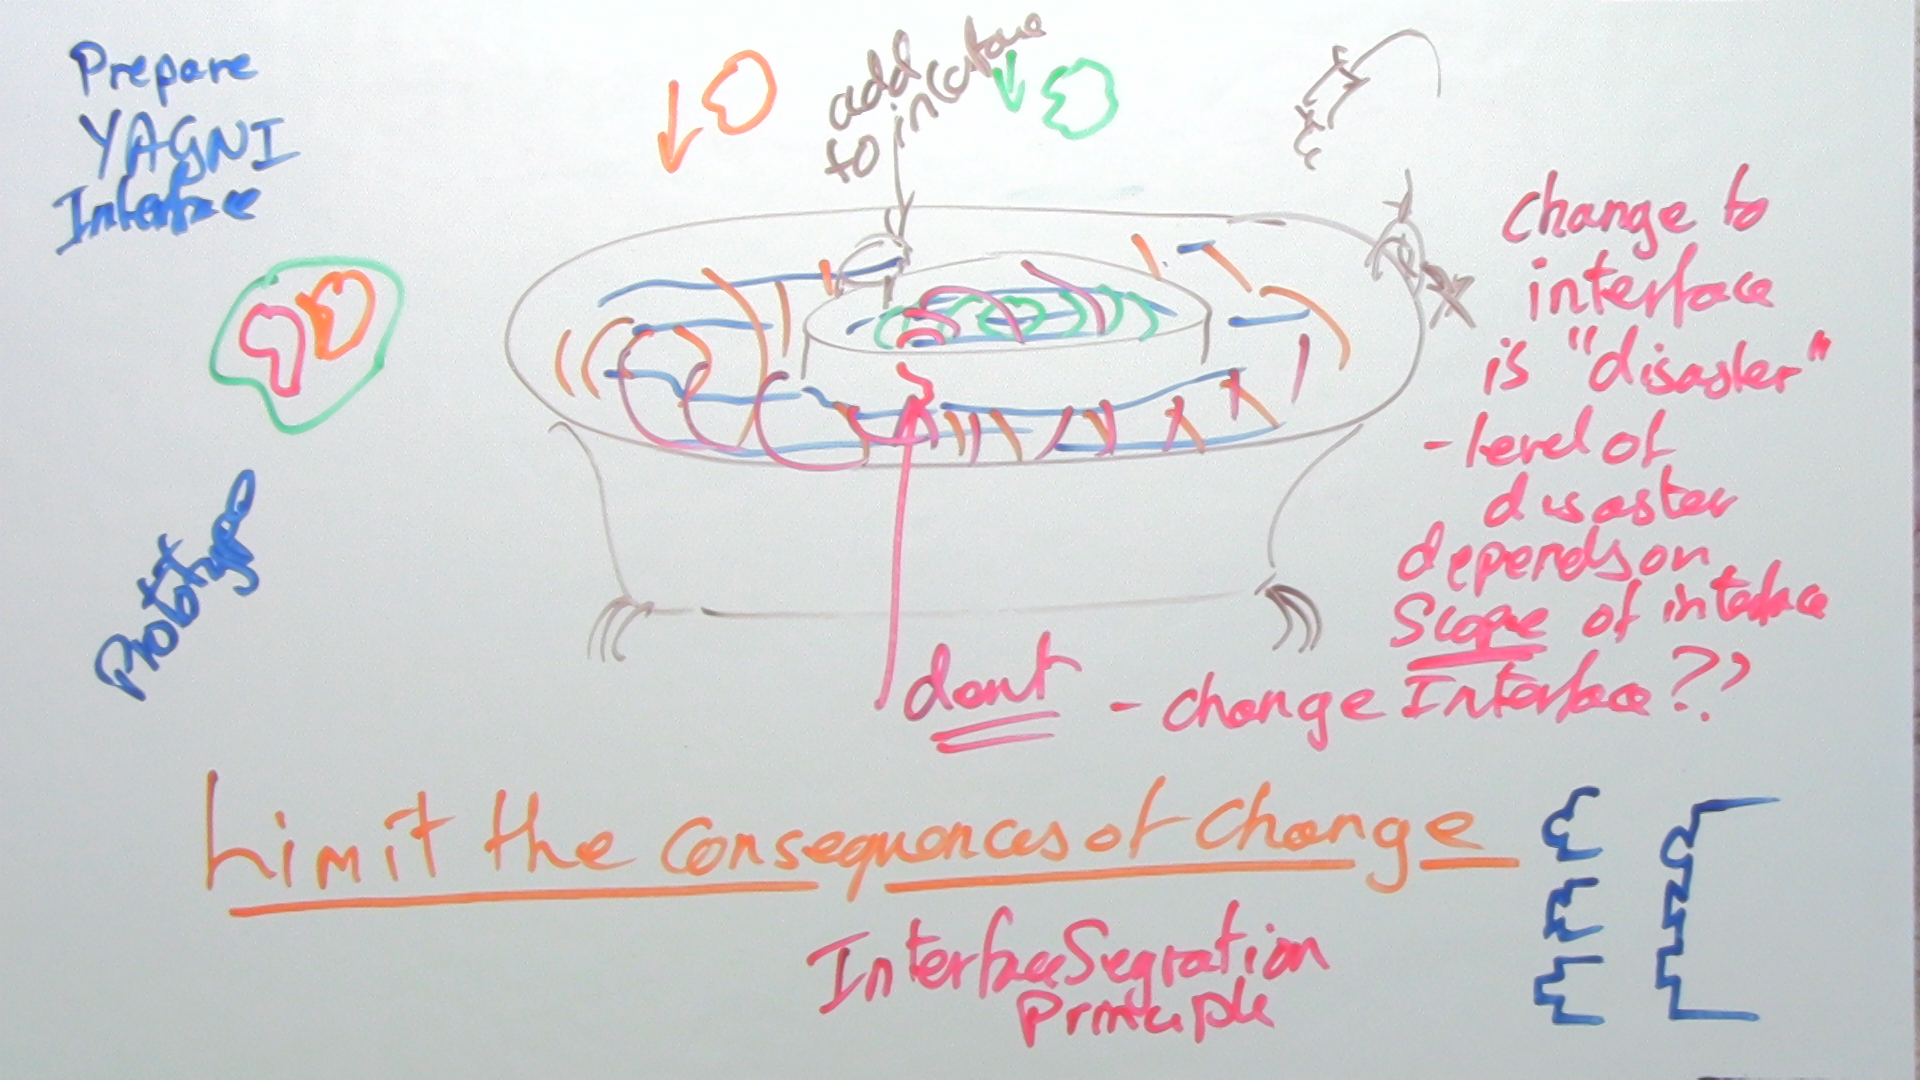 Prepare
YAGNI
Interface
add
to interface
change to
interface
is "disaster"
- level of
disaster
depends on
Scope of interface
Prototype
dont - change Interface??
Limit the Consequences of Change
Interface Segration
Principle